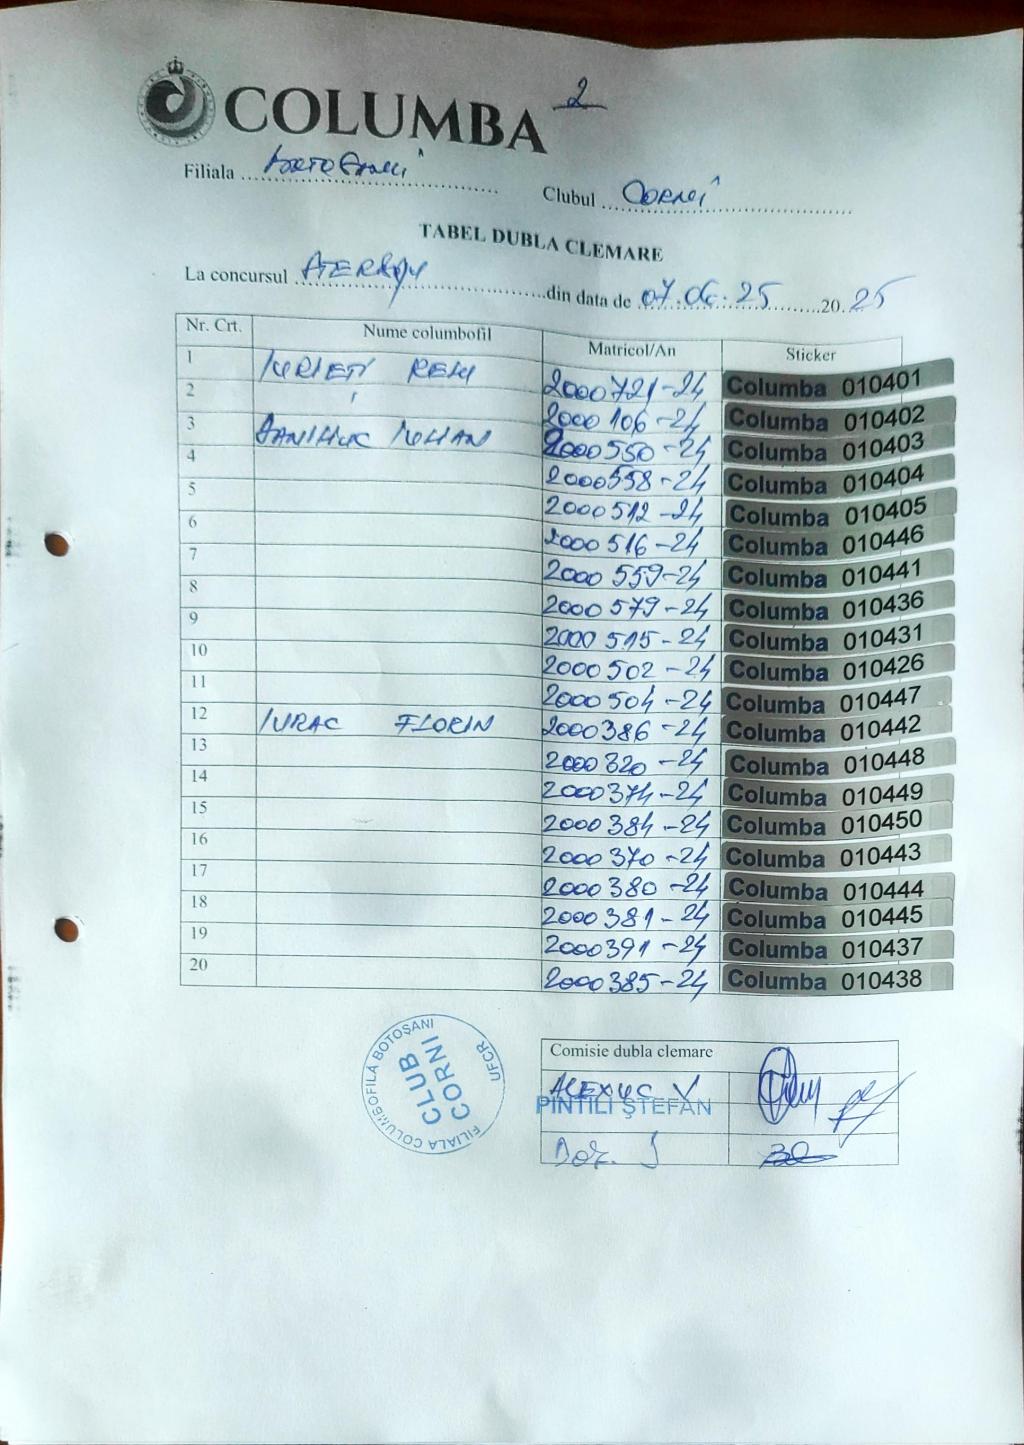 COLUMBA 2
Filiala Clubul Corni
TABEL DUBLA CLEMARE
La concursul din data de 07.06.25 2025
Nr. Crt. Nume columbofil Matricol/An Sticker
1 2000721-24 Columba 010401
2 2000106-24 Columba 010402
3 2000550-24 Columba 010403
4 2000558-24 Columba 010404
5 2000512-24 Columba 010405
6 2000516-24 Columba 010446
7 2000559-24 Columba 010441
8 2000579-24 Columba 010436
9 2000515-24 Columba 010431
10 2000502-24 Columba 010426
11 2000504-24 Columba 010447
12 IURAC FLORIN 2000386-24 Columba 010442
13 2000320-24 Columba 010448
14 2000374-24 Columba 010449
15 2000384-24 Columba 010450
16 2000370-24 Columba 010443
17 2000380-24 Columba 010444
18 2000381-24 Columba 010445
19 2000391-24 Columba 010437
20 2000385-24 Columba 010438
FILIALA COLUMBOFILA BOTOȘANI UFCR
CLUB
CORNI
Comisie dubla clemare
ALEXUC V
PINTILI ȘTEFAN